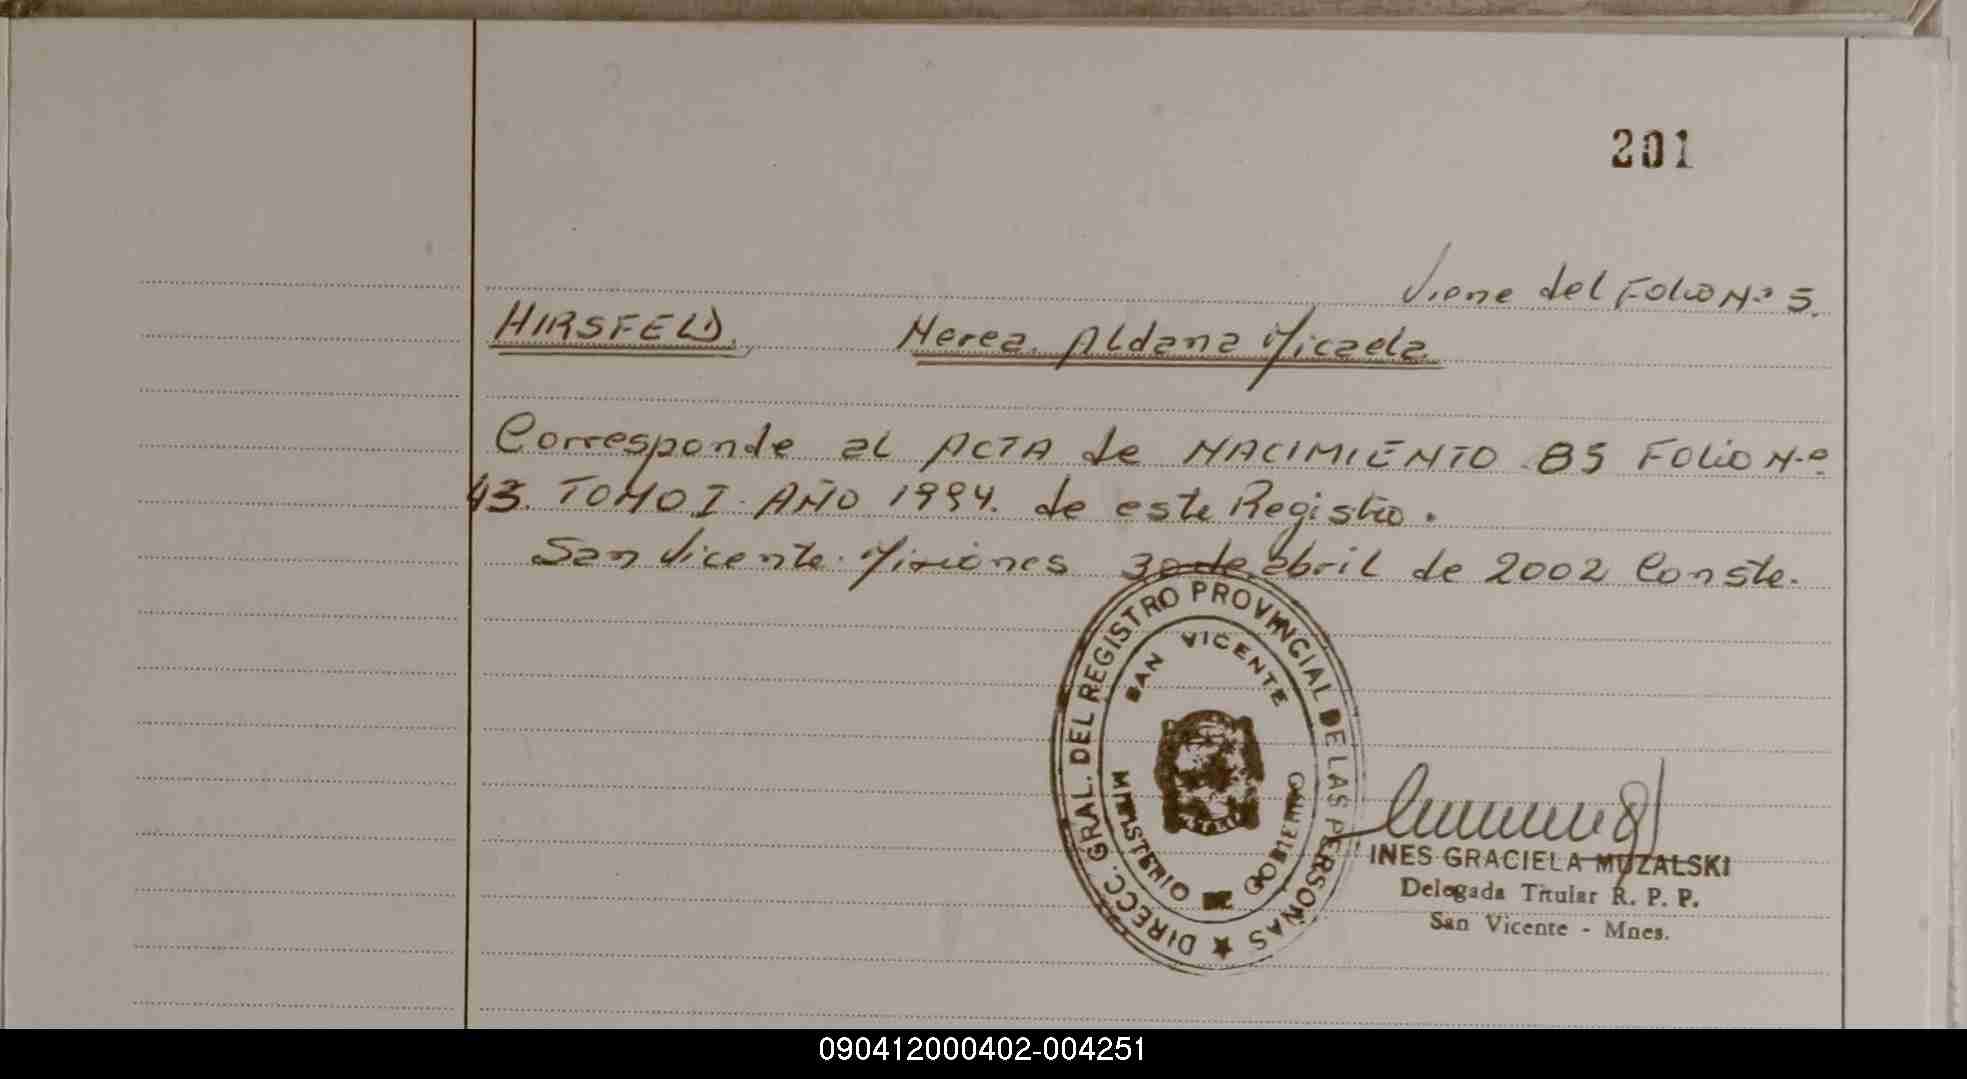 201
Viene del Folio N.º 5.
HIRSFELD. Nerea. Aldana Micaela
Corresponde al ACTA de NACIMIENTO 85 Folio N.º
43. TOMO I. AÑO 1994. de este Registro.
San Vicente. Misiones 30 de abril de 2002 Conste.
DIRECC. GRAL. DEL REGISTRO PROVINCIAL DE LAS PERSONAS
SAN VICENTE
MINISTERIO DE GOBIERNO
INES GRACIELA MUZALSKI
Delegada Titular R. P. P.
San Vicente - Mnes.
090412000402-004251